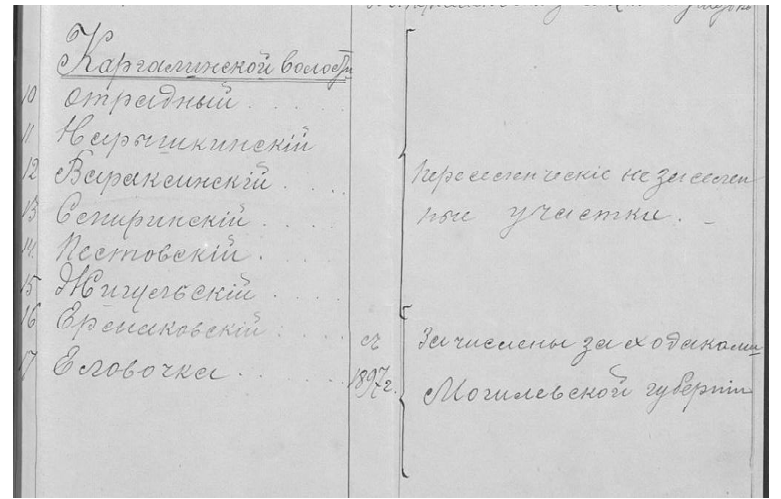 Каргалинской волости
10 Отрадный
11 Нарышкинскій
12 Вараксинскій
13 Сепиринскій
14. Пестовскій
15 Жигульскій
16
17 Еловочка
Переселенческіе не заселен
ные участки.
съ
1897 г.
Зачислены за ходаками
Могилевской губерніи